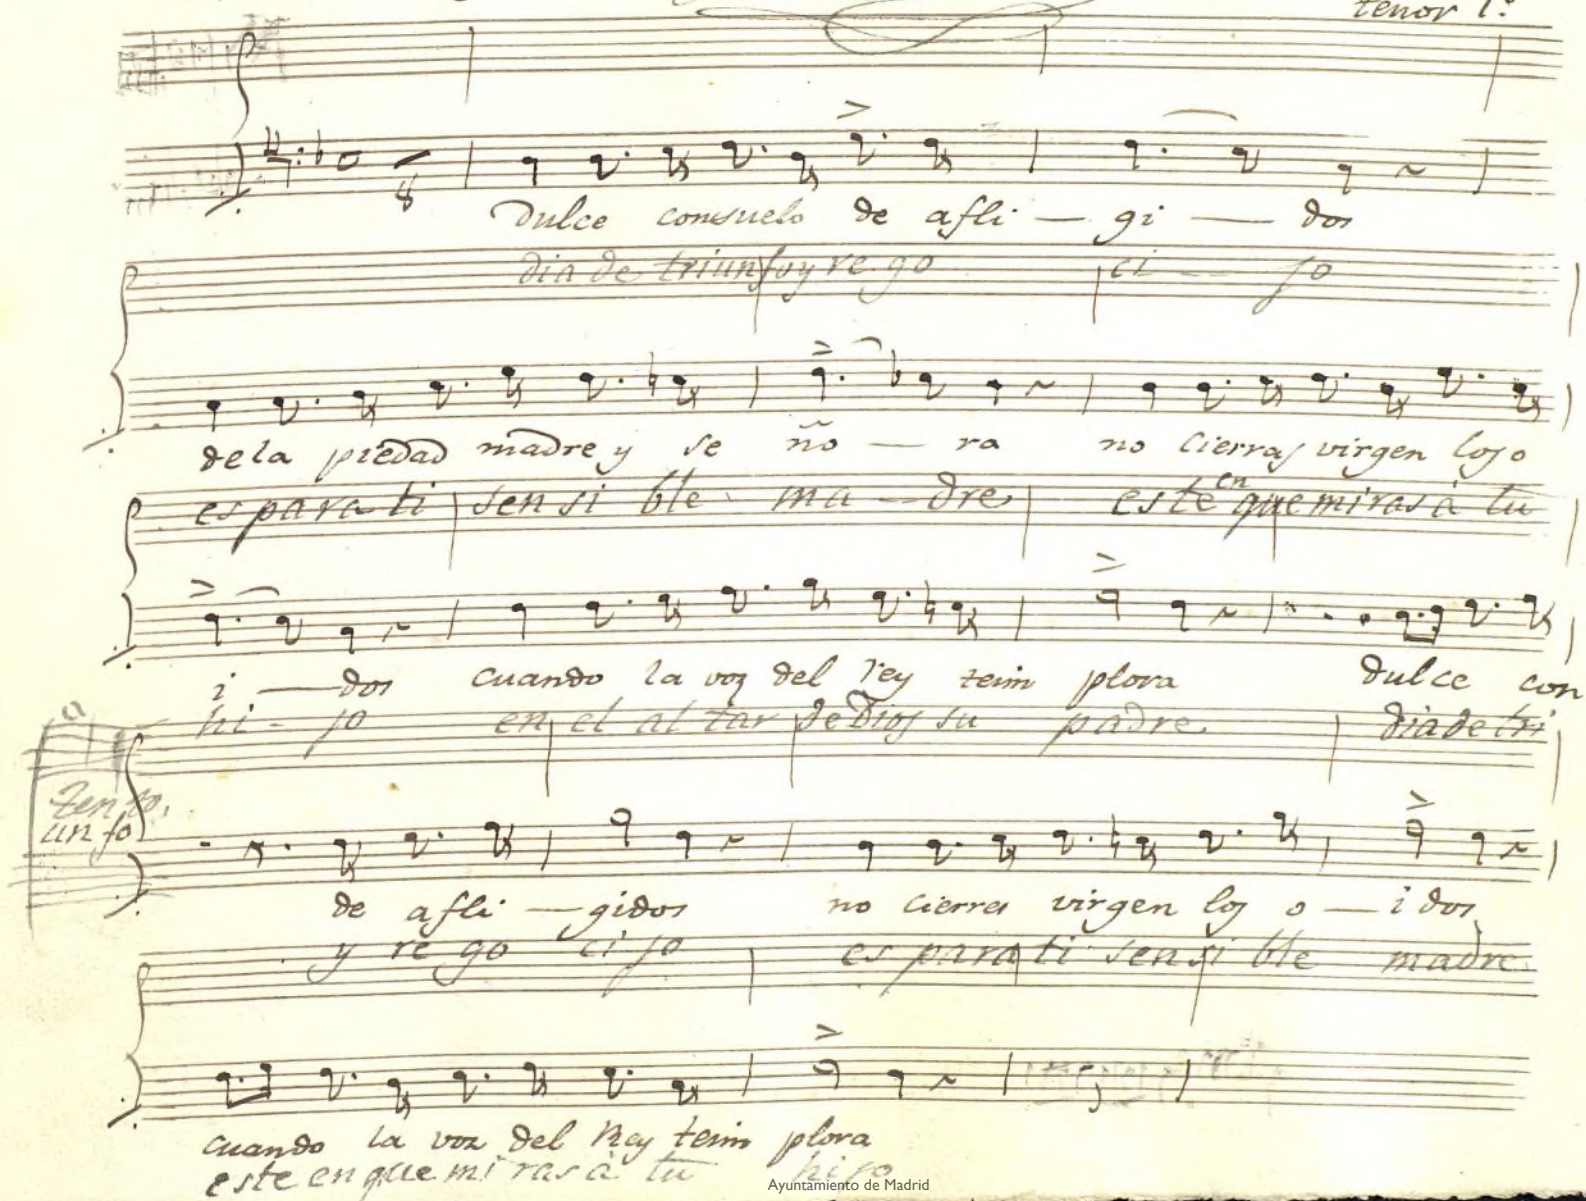 tenor 1º
8
Dulce consuelo de afli — gi — dos
dia de triunfo y re go ci — jo
de la piedad madre y se ño — ra no cierras virgen los o
es para ti sen si ble ma — dre este en que miras à tu
i — dos cuando la voz del rey teim plora dulce con
hi - jo en el al tar de Dios su padre dia de tri
unfo
de afli — gidos no cierres virgen los o — i dos
y re go ci jo es para ti sensi ble madre
cuando la voz del Rey teim plora
este en que mi ras à tu hijo
Ayuntamiento de Madrid